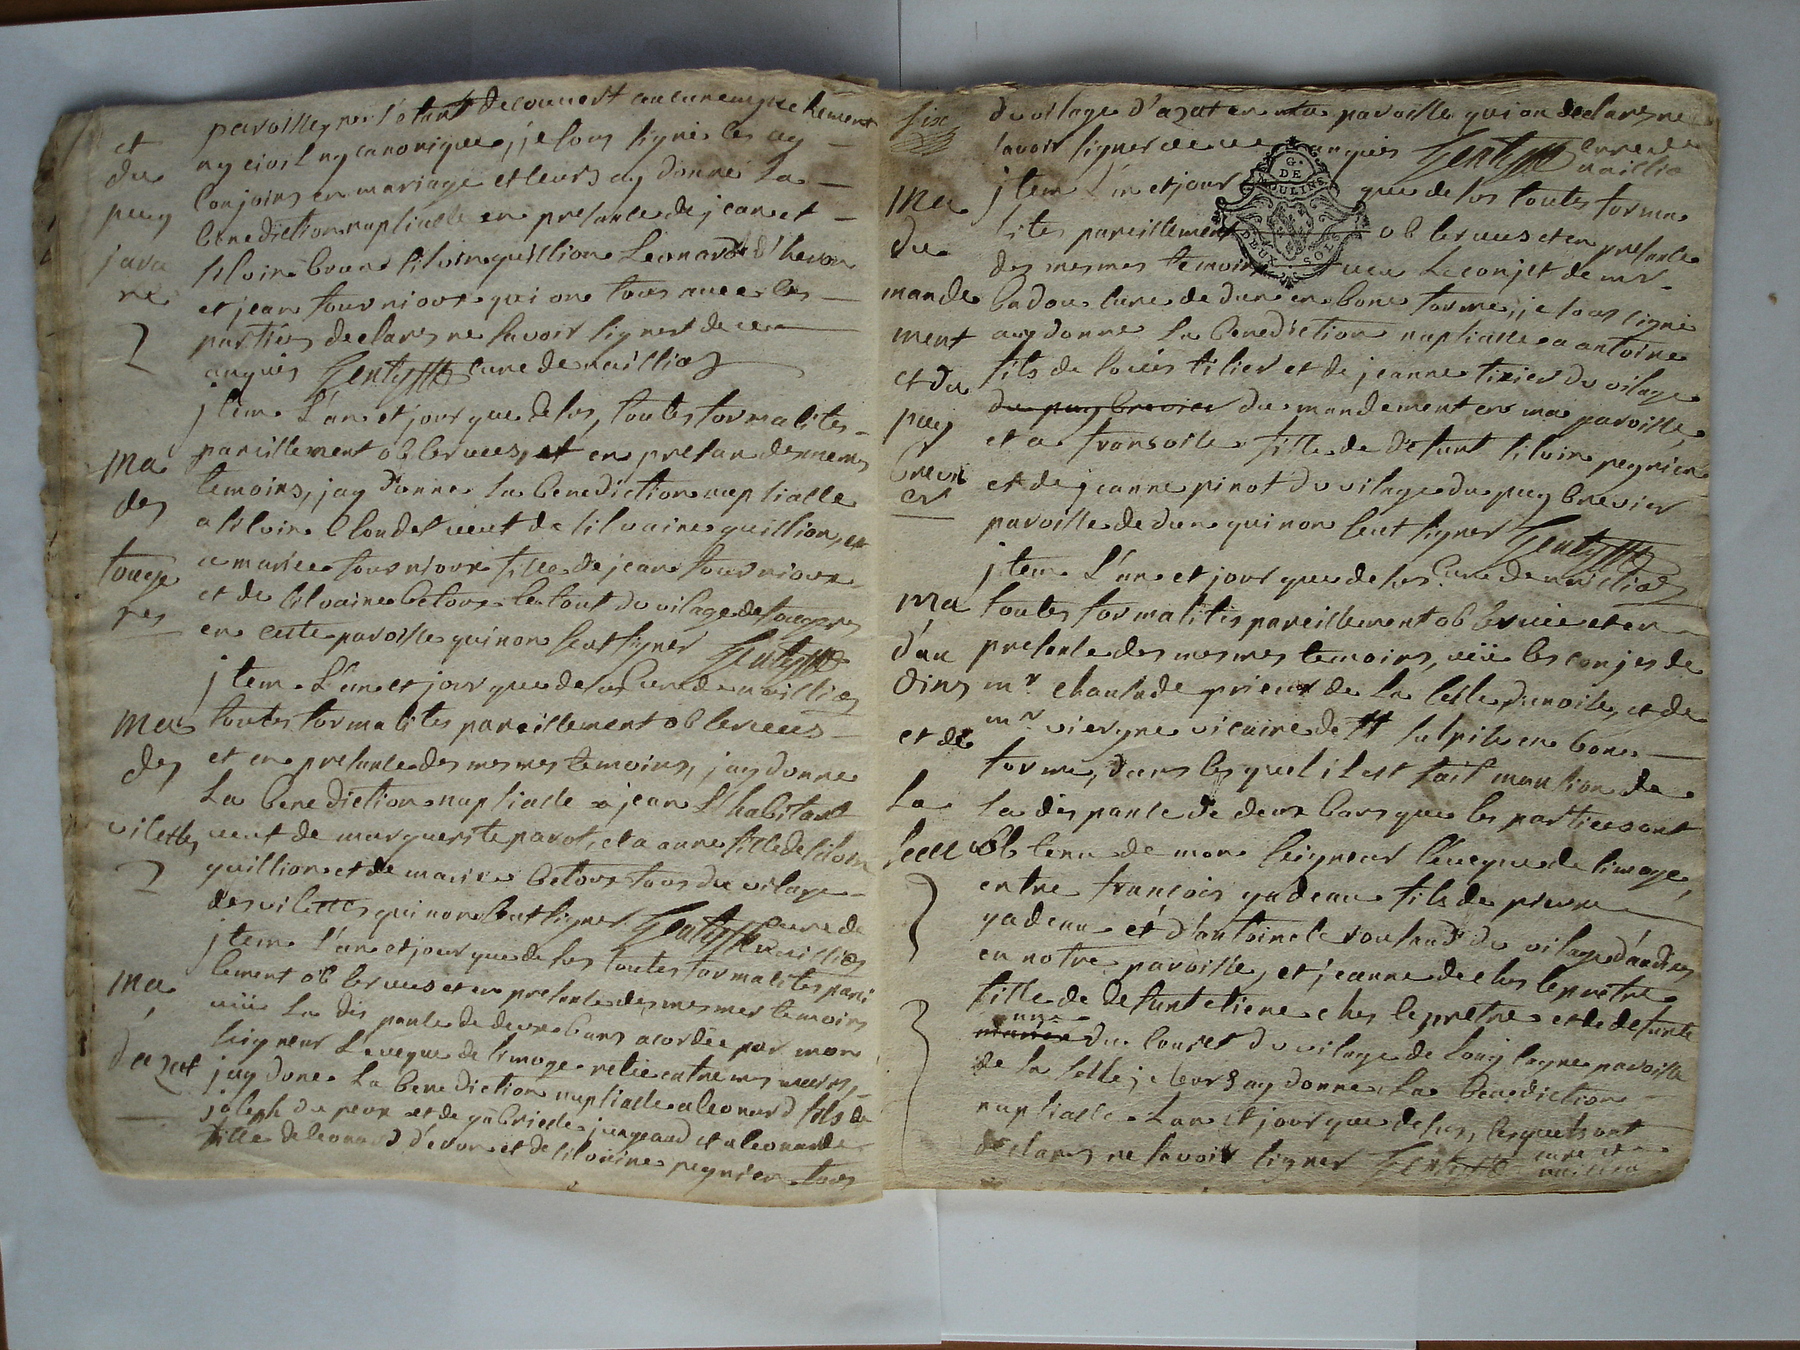 paroisse ne s'etant decouvert aucun empechement
ny civil ny canonique, je sous signé les ay
conjoins en mariage et leurs ay donné la
benediction nuptialle en presance de jean et
silvain brun silvain quillion Leonard d'hevon
et jean fourniour qui on tous avec les
parties declarés ne savoir signer de ce
anquis Genty curé de naillias
et
du
puy
jara
re
jtem L'an et jour que desus, toutes formalites
pareillement observees, et en presan des memes
temoins, jay donne la benediction nuptialle
a silvain blondet veuf de silvaine quillion, et
a marie fourniour fille de jean fourniour
et de silvaine betour le tout du vilage de fougeres
en cette paroisse qui non seut signer Genty
curé de naillias
Ma
des
fouge
res
jtem L'an et jour que desus
toutes formalites pareillement observees
et en presance des mesmes temoins, jay donne
La benediction nuptialle a jean L'habitant
veuf de marguerite parot, et a anne fille de silvain
quillion et de marie betour tous du vilage
des vilettes qui non seut signer Genty curé de
naillias
Ma
des
vilettes
jtem L'an et jour que desus toutes formalites parei
lement observees et en presance des mesmes temoins
vüe La dispance de deux bans acordée par mon
seigneur L'eveque de limoge
jay donè La benediction nuptialle a leonard fils de
joseph du peux et de gabrielle jungeaud et a leonarde
fille de leonard d'evon et de silvaine peynier tous
Ma
d'azat
six
du vilage d'azat en ma paroisse qui on declarés ne
savoir signer de ce anquis Genty curé de
naillias
G. DE MOULINS
DEUX SOLS
jtem L'an et jour que desus toutes forma
lites pareillement observees et en presance
des mesmes temoins vu Le conjet de mr
badou curé de dun en bone forme, je sous signé
ay donne La benediction nuptialle a antoine
fils de louis tilier et de jeanne tixier du vilage
du puy brevier du mandement en ma paroisse,
et a fransoise fille de defunt silvain peynier
et de jeanne pinot du vilage du puy brevier
paroisse de dun qui non seut signer Genty
curé de naillias
Ma
du
mande
ment
et du
puy
brevi
er
jtem L'an et jour que desus
toutes formalitis pareillement observèe et en
presance des mesmes temoins, vüe les conjes de
mr chaussade prieur de La selle dunoise, et de
mr viergne vicaire de st sulpise en bone
forme, dans les quel il est fait mansion de
la dispance de deux bans que les parties ont
obtenu de mon seigneur l'eveque de limoge,
entre françois yadeau fils de pierre
yadeau et d'antoinete rouland du vilage d'andins
en notre paroisse, et jeanne de ches lepretre
fille de defunt etiene ches lepretre et de defunte
anne
mariée du couret du vilage de Longechegne paroisse
de la selle; je leurs ay donne La benediction
nuptialle L'an et jour que desus, lesquels ont
declares ne savoir signer Genty curé de
naillias
Ma
d'an
dins
et de
La
selle